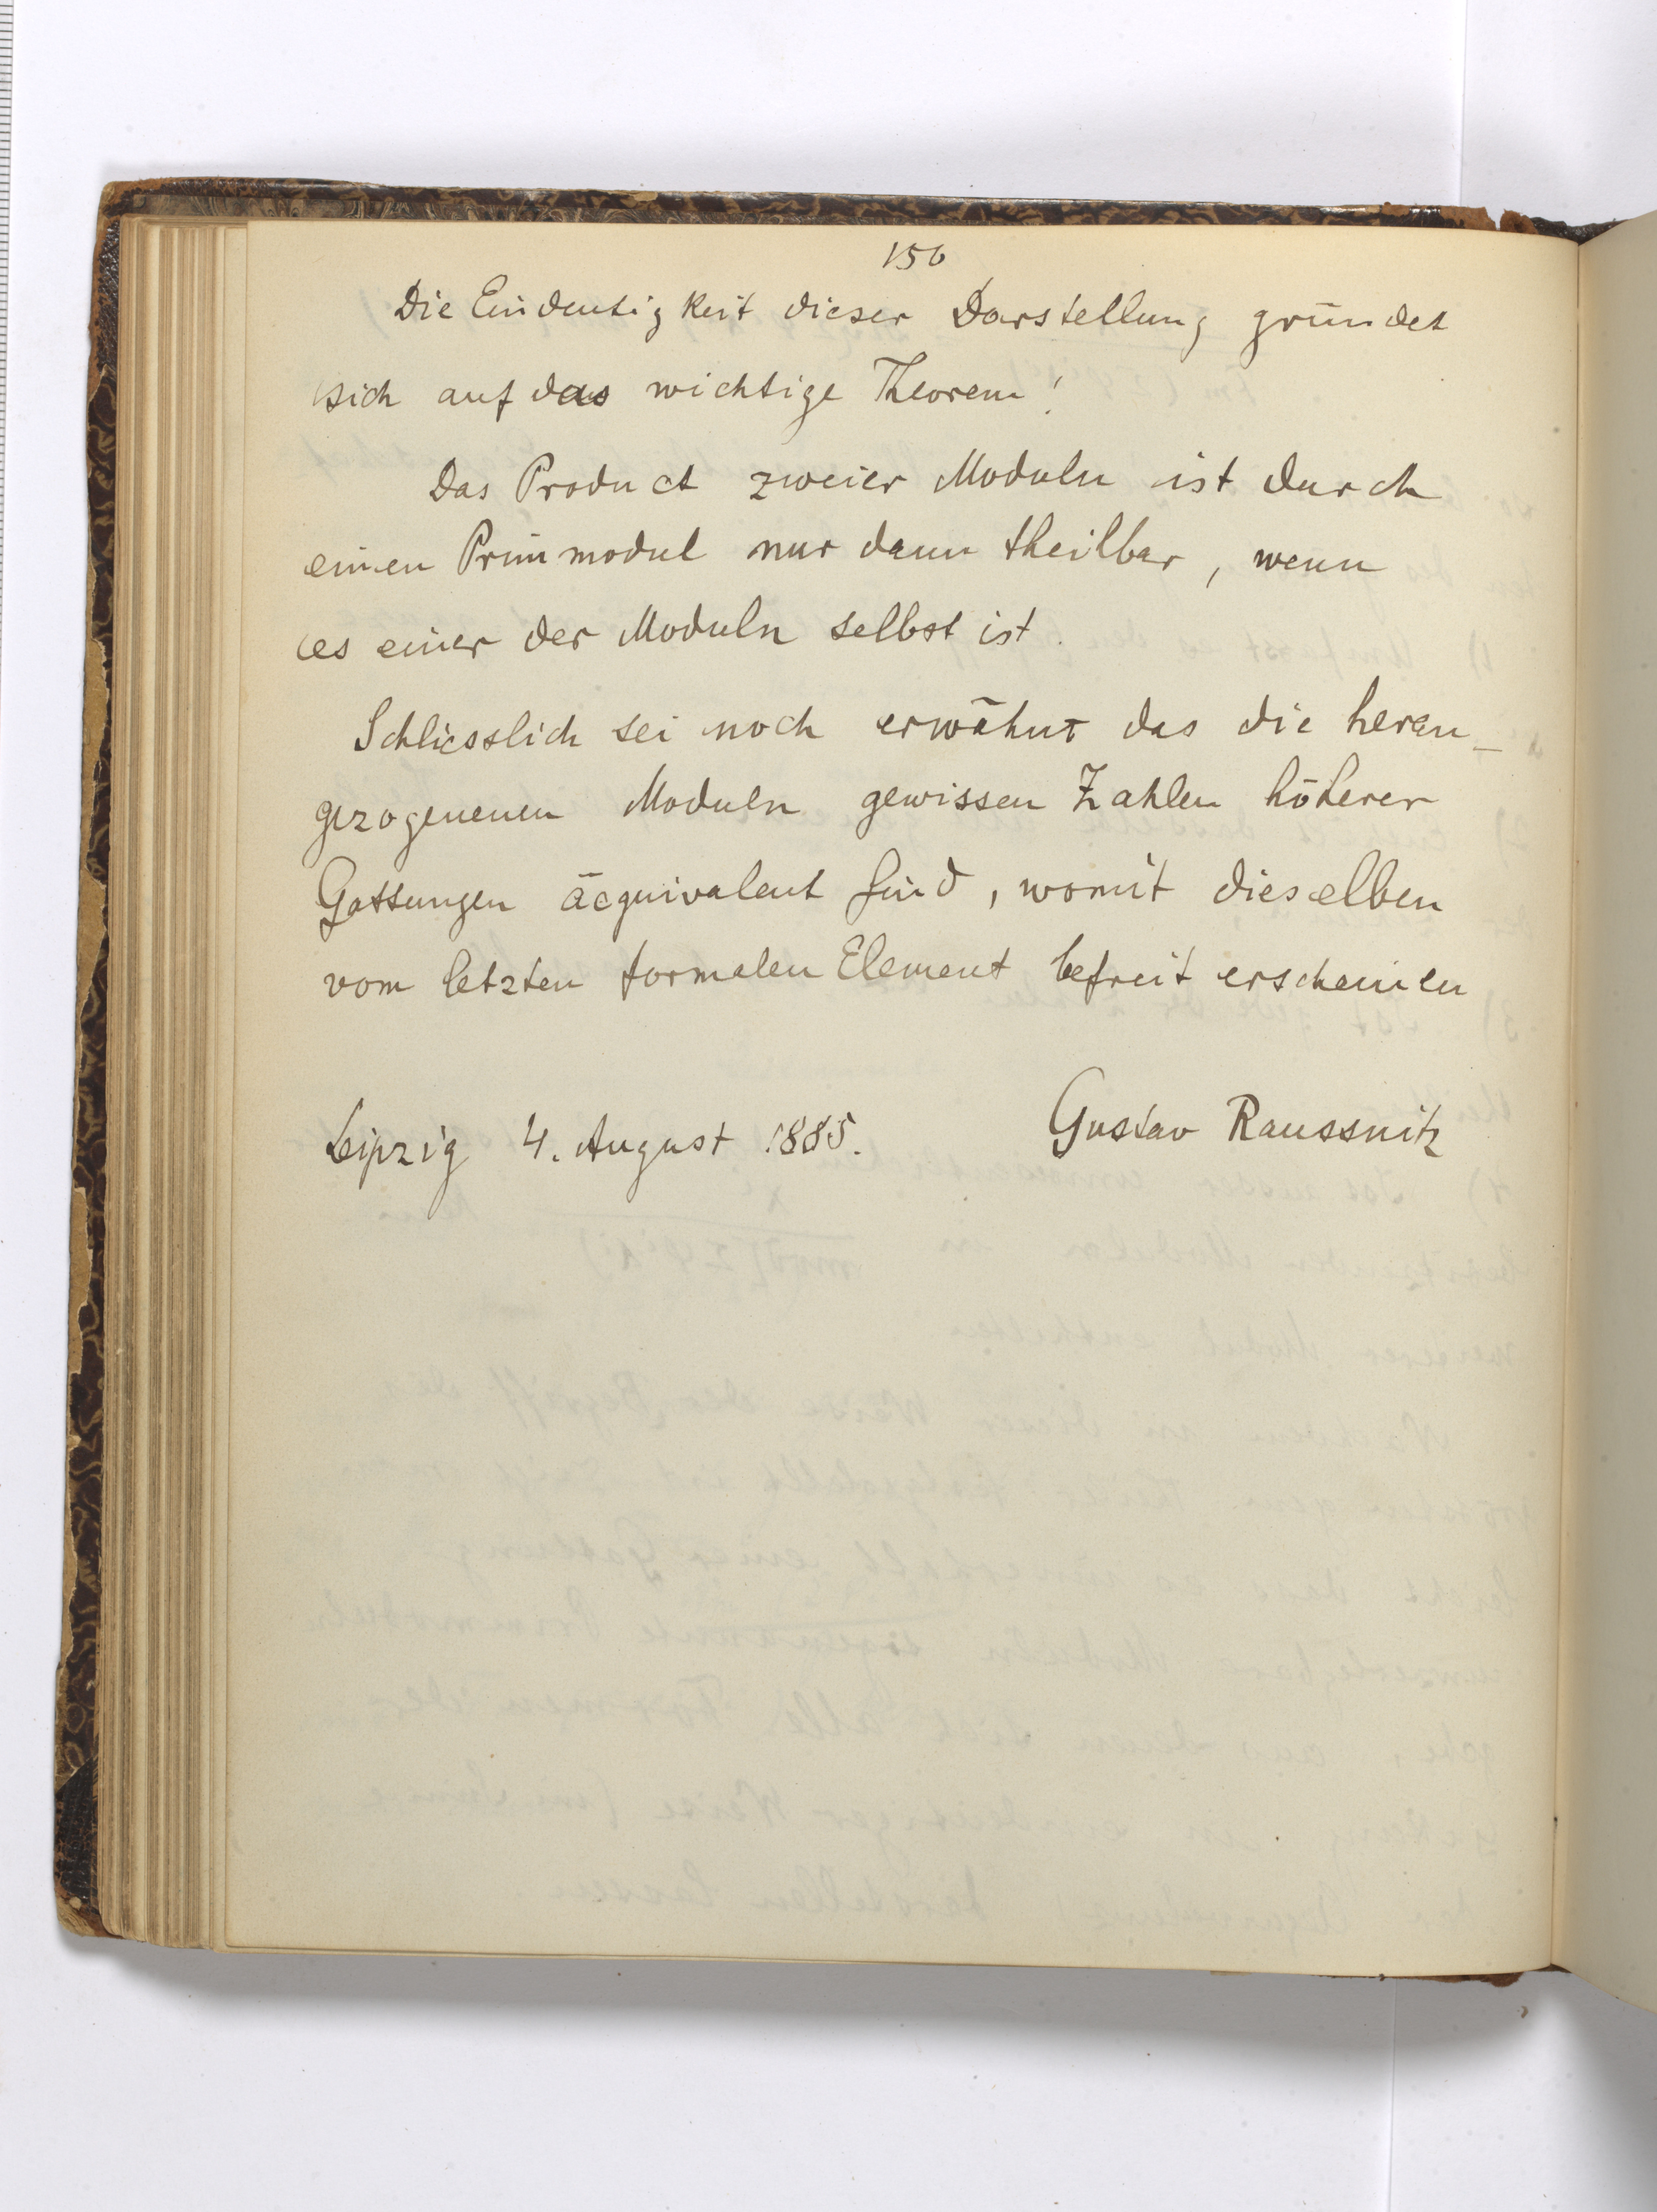 156
Die Eindeutigkeit dieser Darstellung gründet
sich auf das wichtige Theorem!
Das Product zweier Moduln ist durch
einen Primmodul nur dann theilbar, wenn
es einer der Moduln selbst ist.
Schliesslich sei noch erwähnt das die heran-
gezogenenen Moduln gewissen Zahlen höherer
Gattungen äequivalent sind, womit dieselben
vom letzten formalen Element befreit erscheinen
Leipzig 4. August 1885. Gustav Raussnitz